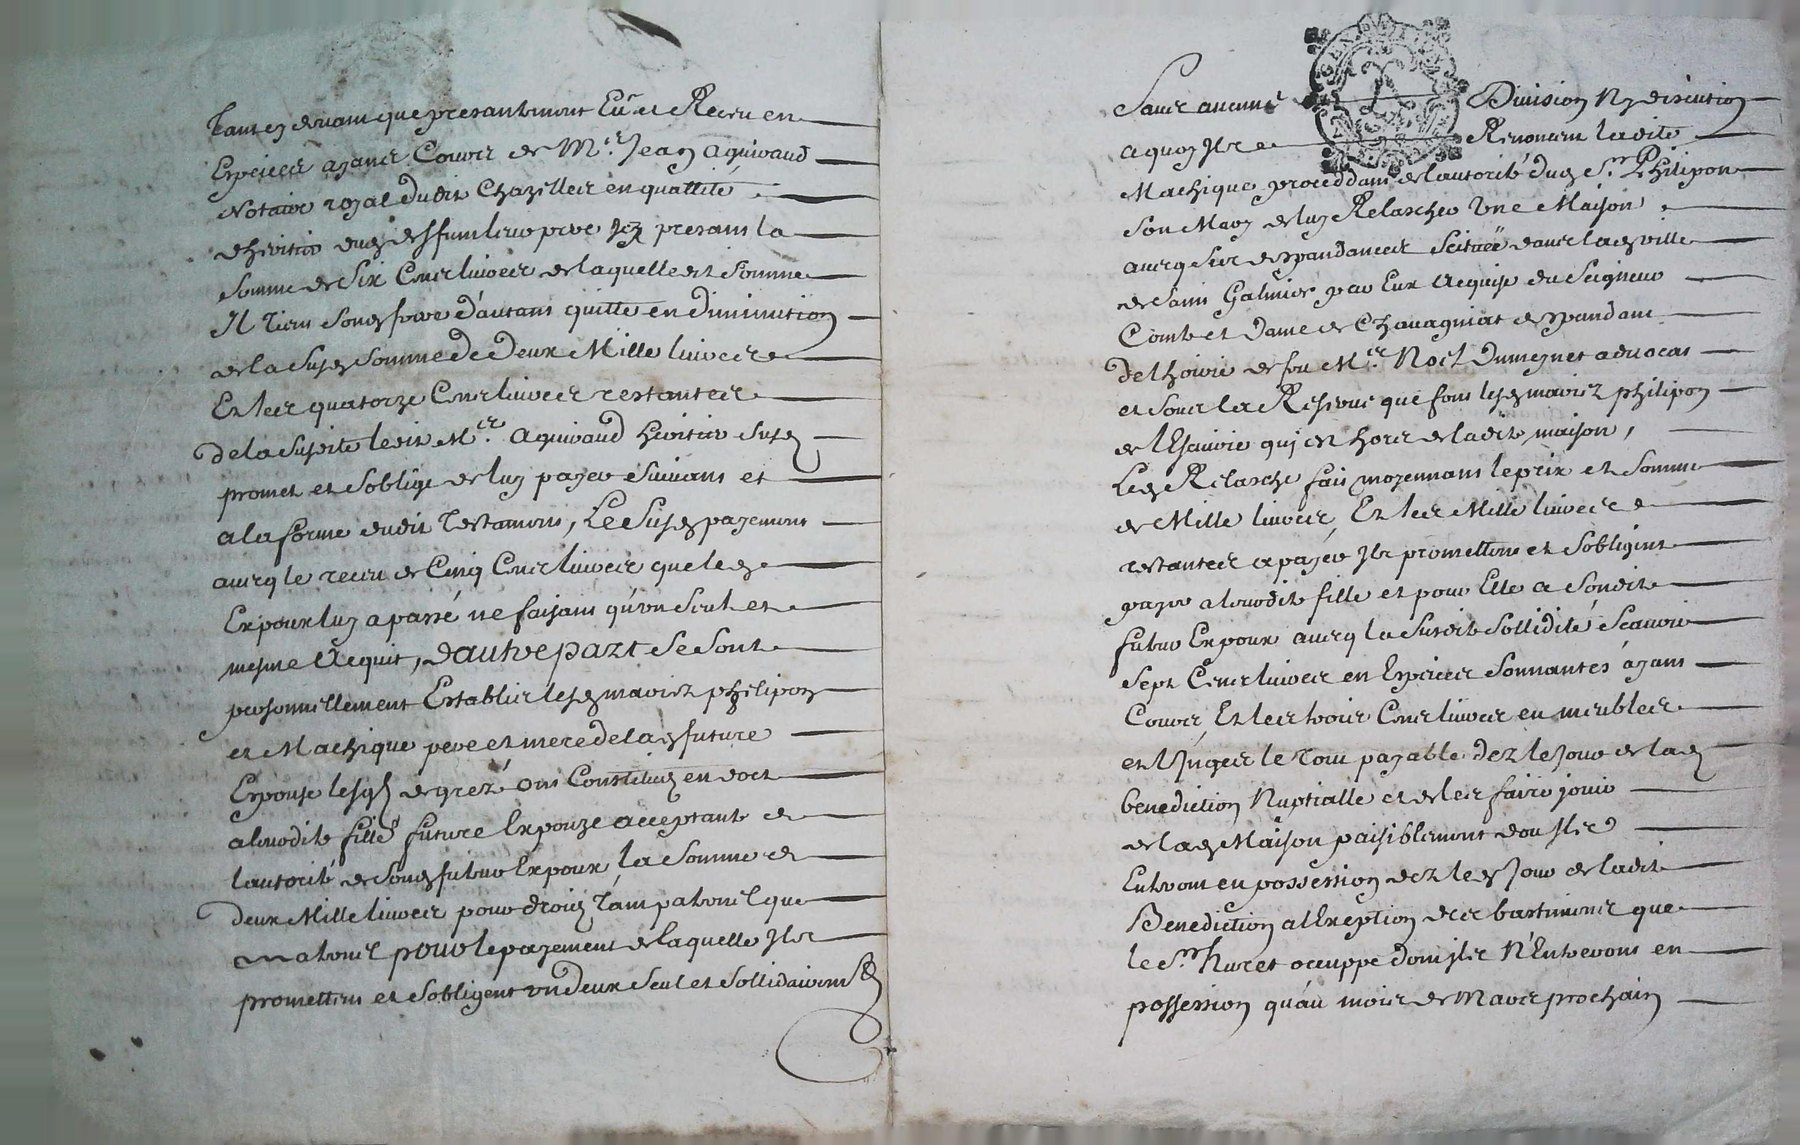 Tant cy devant que presantement Eu et Receu en
Especes ayans Cours de Mre Jean aguiraud
Notaire royal dudit Chazelles en quallité
d'heritier dud deffunt sieur pere icy presant la
somme de Six Cens livres de laquelled somme
Il tient sond frere d'autant quitte en diminution
de la susd somme de deux Mille livres
Et les quatorze Cens livres restantes
de la susdite ledit Mre aguiraud heritier susd
promet et s'oblige de luy payer suivant et
a la forme dudit testament, Le susd payement
avecq le receu de Cinq Cens livres que led
Expoux luy a passé ne faisant qu'un seul et
mesme Acquit, d'autre part se sont
personnellement Establis lesd mariez philipon
et Machique pere et mere de lad future
Expouse lesqls de grez ont Constitué en dot
a leurdite fille future Expouze acceptante de
l'autorité de sond futur Expoux, la somme de
deux Mille livres pour droits tant paternel que
maternel pour le payement de laquelle Ils
promettent et s'obligent un deux seul et sollidairemt
Sans aucune Division Ny discution
a quoy Ils Renoncent ladite
Machique proceddant de l'autorité dud Sr Philipon
son Mary de luy Relascher Une Maison
avecq ses despandances scituée dans lad ville
de Saint Galmier par Eux acquise du Seigneur
Comte et Dame de Chavagniat despandant
de l'hoirie de feu Mre Noel Dumeynet advocat
et sous la Reserve que font lesd mariez philipon
de l'Escuirie qui est hors de ladite maison,
Led Relasche fait moyennant le prix et somme
de Mille livres, Et les Mille livres
restantes a payer Ils promettent et s'obligent
payer a leurdite fille et pour Elle a sondit
futur Expoux avecq la susdite sollidité scavoir
sept Cens livres en Especes sonnantes ayans
Cours, Et les trois Cens livres en meubles
et linges le tout payable dez le jour de lad
benediction Nuptialle et de les faire jouir
de lad Maison paisiblement dont Ils
Entreront en possession dez led jour de ladite
Benediction a l'Exeption des bastiments que
le Sr huret occuppe dont ils N'Entreront en
possession qu'au mois de Mars prochain